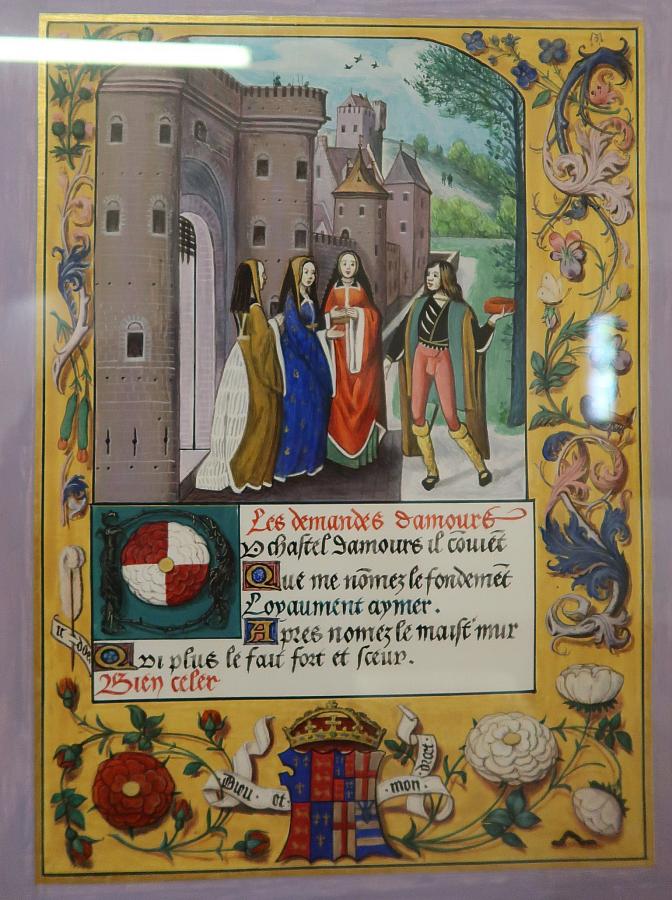 Les demandes damours
D chastel damours il couiēt
Que me nōmez le fondemēt
Loyaument aymer.
Apres nomez le maist mur
Qvi plus le fait fort et sceur.
Bien celer
Dieu · et · mon · droit